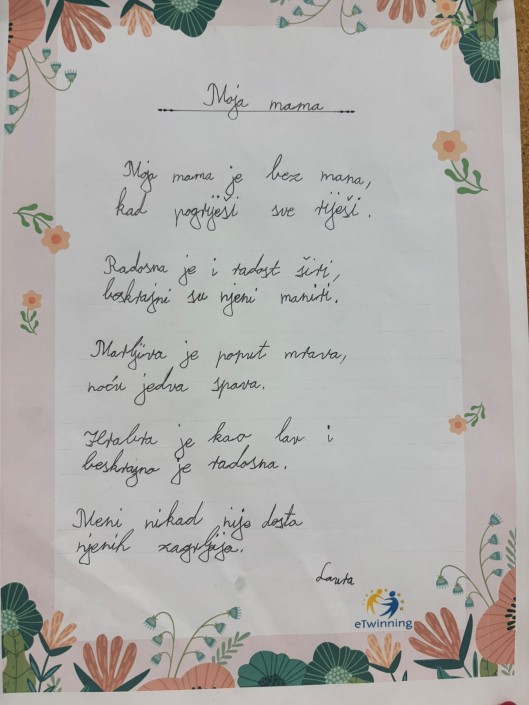 Moja mama
Moja mama je bez mana,
kad pogriješi sve riješi.
Radosna je i radost širi,
beskrajni su njeni maniri.
Marljiva je poput mrava,
noću jedva spava.
Hrabra je kao lav i
beskrajno je radosna.
Meni nikad nije dosta
njenih zagrljaja.
Laura
eTwinning